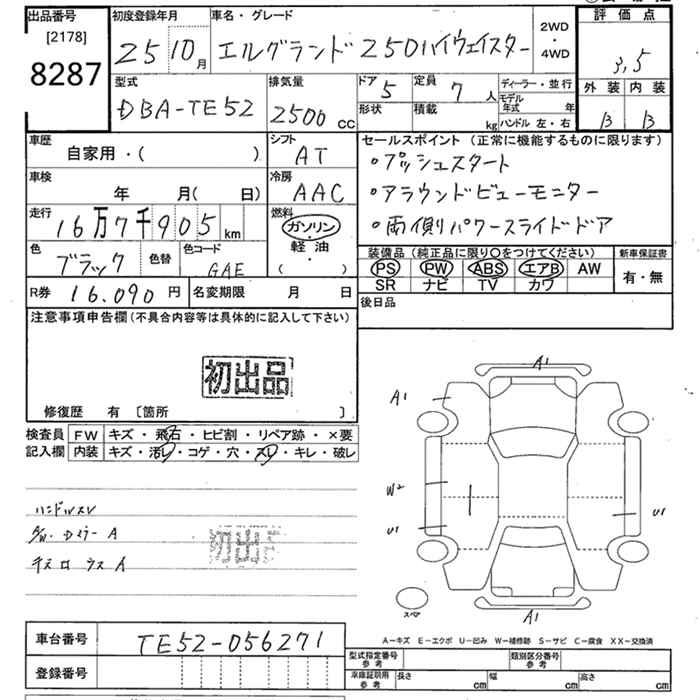 出品番号
[2178]
8287
初度登録年月
25 10月
車名・グレード
エルグランド 250ハイウェイスター
2WD
・
4WD
評価点
3.5
外装 内装
B B
型式
DBA-TE52
排気量
2500 cc
ドア 5
定員 7 人
形状
積載 kg
ディーラー・並行
モデル年式 年
ハンドル 左・右
車歴
自家用・( )
シフト
AT
車検
年 月( 日)
冷房
AAC
走行
16万7千905 km
燃料
ガソリン
・
軽油
・
( )
色
ブラック
色替
色コード
GAE
R券 16.090 円
名変期限 月 日
セールスポイント(正常に機能するものに限ります)
・プッシュスタート
・アラウンドビューモニター
・両側パワースライドドア
装備品(純正品に限り〇をつけてください)
新車保証書
PS PW ABS エアB AW
SR ナビ TV カワ
有・無
後日品
注意事項申告欄(不具合内容等は具体的に記入して下さい)
初出品
修復歴 有 〔箇所 〕
検査員記入欄
FW キズ・飛石・ヒビ割・リペア跡・×要
内装 キズ・汚レ・コゲ・穴・スレ・キレ・破レ
ハンドルスレ
初出
A1
A1
W2
U1
U1
A1
スペア
A−キズ E−エクボ U−凹み W−補修跡 S−サビ C−腐食 XX−交換済
車台番号
TE52-056271
登録番号
型式指定番号 参考
類別区分番号 参考
車庫証明用 参考
長さ cm 幅 cm 高さ cm